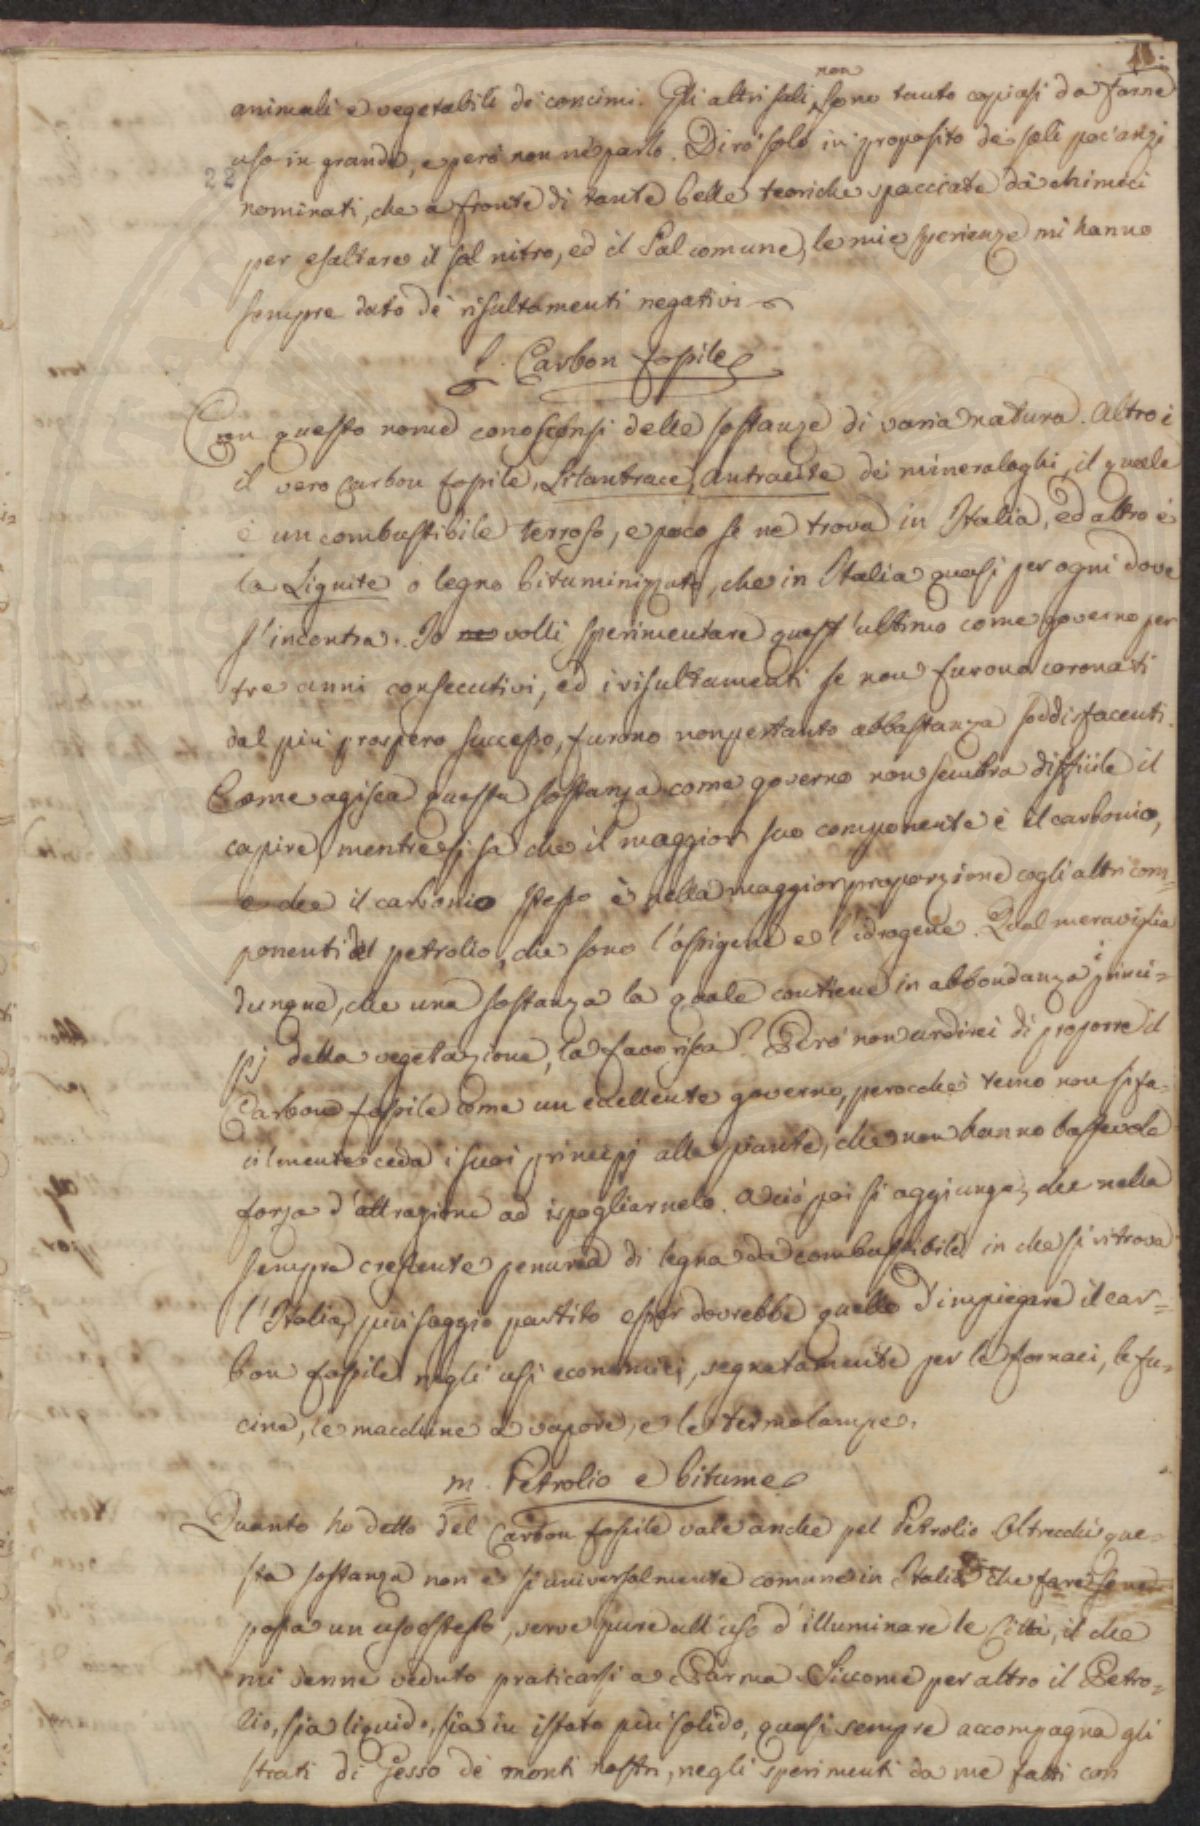 animali e vegetabili de' concimi. Gli altri sali non sono tanto copiosi da farne
uso in grande, e però non ne parlo. Dirò solo in proposito de' sali poc'anzi
22
nominati, che a fronte di tante belle teoriche spacciate da' chimici
per esaltare il sal nitro, ed il Sal comune, le mie sperienze mi hanno
sempre dato de' risultamenti negativi
l. Carbon fossile
Con questo nome conosconsi delle sostanze di varia natura. Altro è
il vero Carbon fossile, Litantrace, Antracite de' mineraloghi, il quale
è un combustibile terroso, e poco se ne trova in Italia, ed altro è
la Lignite o legno bituminizzato, che in Italia quasi per ogni dove
s'incontra. Io volli sperimentare quest'ultimo come governo per
tre anni consecutivi, ed i risultamenti se non furono coronati
dal più prospero successo, furono nonpertanto abbastanza soddisfacenti.
Come agisca questa sostanza come governo non sembra difficile il
capire, mentre si sa che il maggior suo componente è il carbonio,
e che il carbonio stesso è nella maggior proporzione cogli altri com=
ponenti del petrolio, che sono l'ossigene e l'idrogene. Qual meraviglia
dunque, che una sostanza la quale contiene in abbondanza i princi=
pj della vegetazione, la favorisca? Però non ardirei di proporre il
Carbone fossile come un eccellente governo, perocchè temo non sì fa=
cilmente ceda i suoi principj alle piante, che non hanno bastevole
forza d'attrazione ad ispogliarnelo. A ciò poi si aggiunge, che nella
sempre crescente penuria di legna da combustibile in che si ritrova
l'Italia, più saggio partito esser dovrebbe quello d'impiegare il car=
bon fossile negli usi economici, segnatamente per le fornaci, le fu=
cine, le macchine a vapore, e le termolampe.
m. Petrolio e bitume
Quanto ho detto del Carbon fossile vale anche pel Petrolio. Oltrecchè que=
sta sostanza non è sì universalmente comune in Italia che farsene
possa un uso esteso, serve pure all'uso d'illuminare le Città, il che
mi venne veduto praticarsi a Parma. Siccome per altro il Petro=
lio, sia liquido, sia in istato più solido, quasi sempre accompagna gli
strati di Gesso de' monti nostri, negli sperimenti da me fatti con